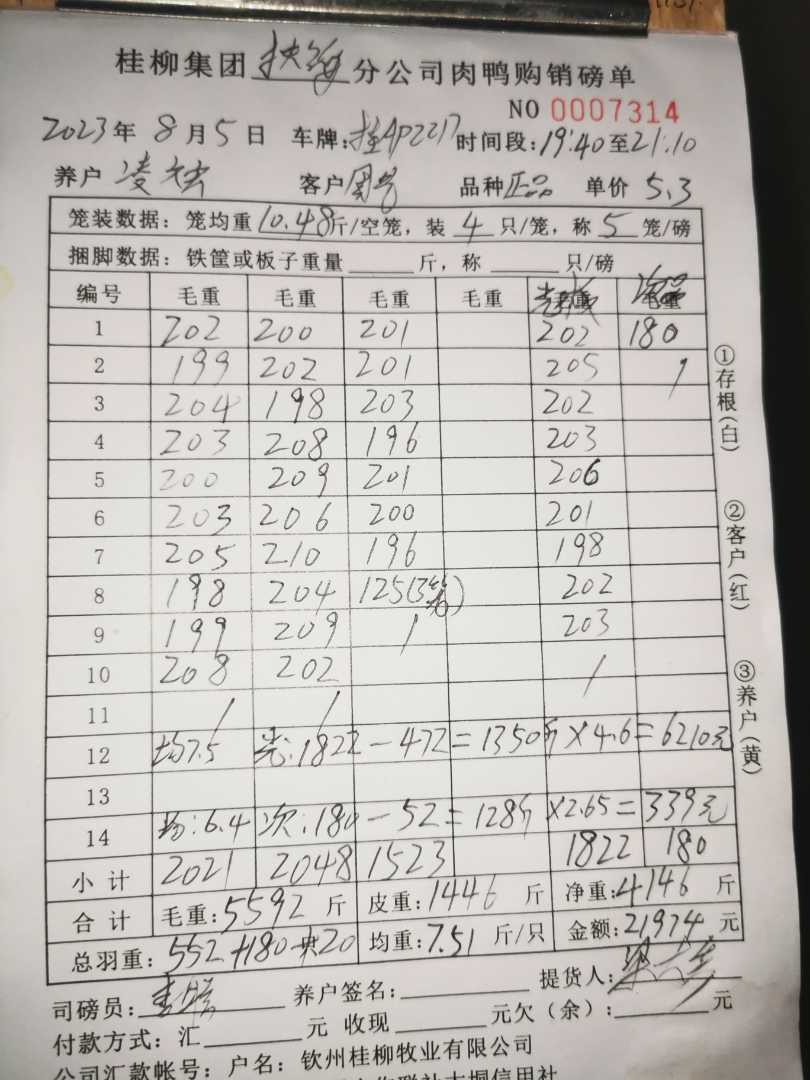 桂柳集团 扶绥 分公司肉鸭购销磅单
NO 0007314
2023年 8月5日 车牌:桂AP2217 时间段:19:40至21:10
养户 凌 客户 品种 正品 单价 5.3
笼装数据: 笼均重 10.48斤/空笼, 装 4 只/笼, 称 5 笼/磅
捆脚数据: 铁筐或板子重量 斤, 称 只/磅
编号 毛重 毛重 毛重 毛重
1 202 200 201 202 180
2 199 202 201 205 /
3 204 198 203 202
4 203 208 196 203
5 200 209 201 206
6 203 206 200 201
7 205 210 196 198
8 198 204 125(3笼) 202
9 199 209 / 203
10 208 202 /
11 / /
12 均7.5 光:1822-472=1350斤×4.6=6210元
13
14 均:6.4 次:180-52=128斤×2.65=339元
小计 2021 2048 1523 1822 180
合计 毛重:5592斤 皮重:1446斤 净重:4146斤
总羽重: 552+180共20 均重:7.51斤/只 金额:21974元
司磅员: 养户签名: 提货人:
付款方式: 汇 元 收现 元欠(余): 元
公司汇款帐号: 户名: 钦州桂柳牧业有限公司
①存根(白)
②客户(红)
③养户(黄)